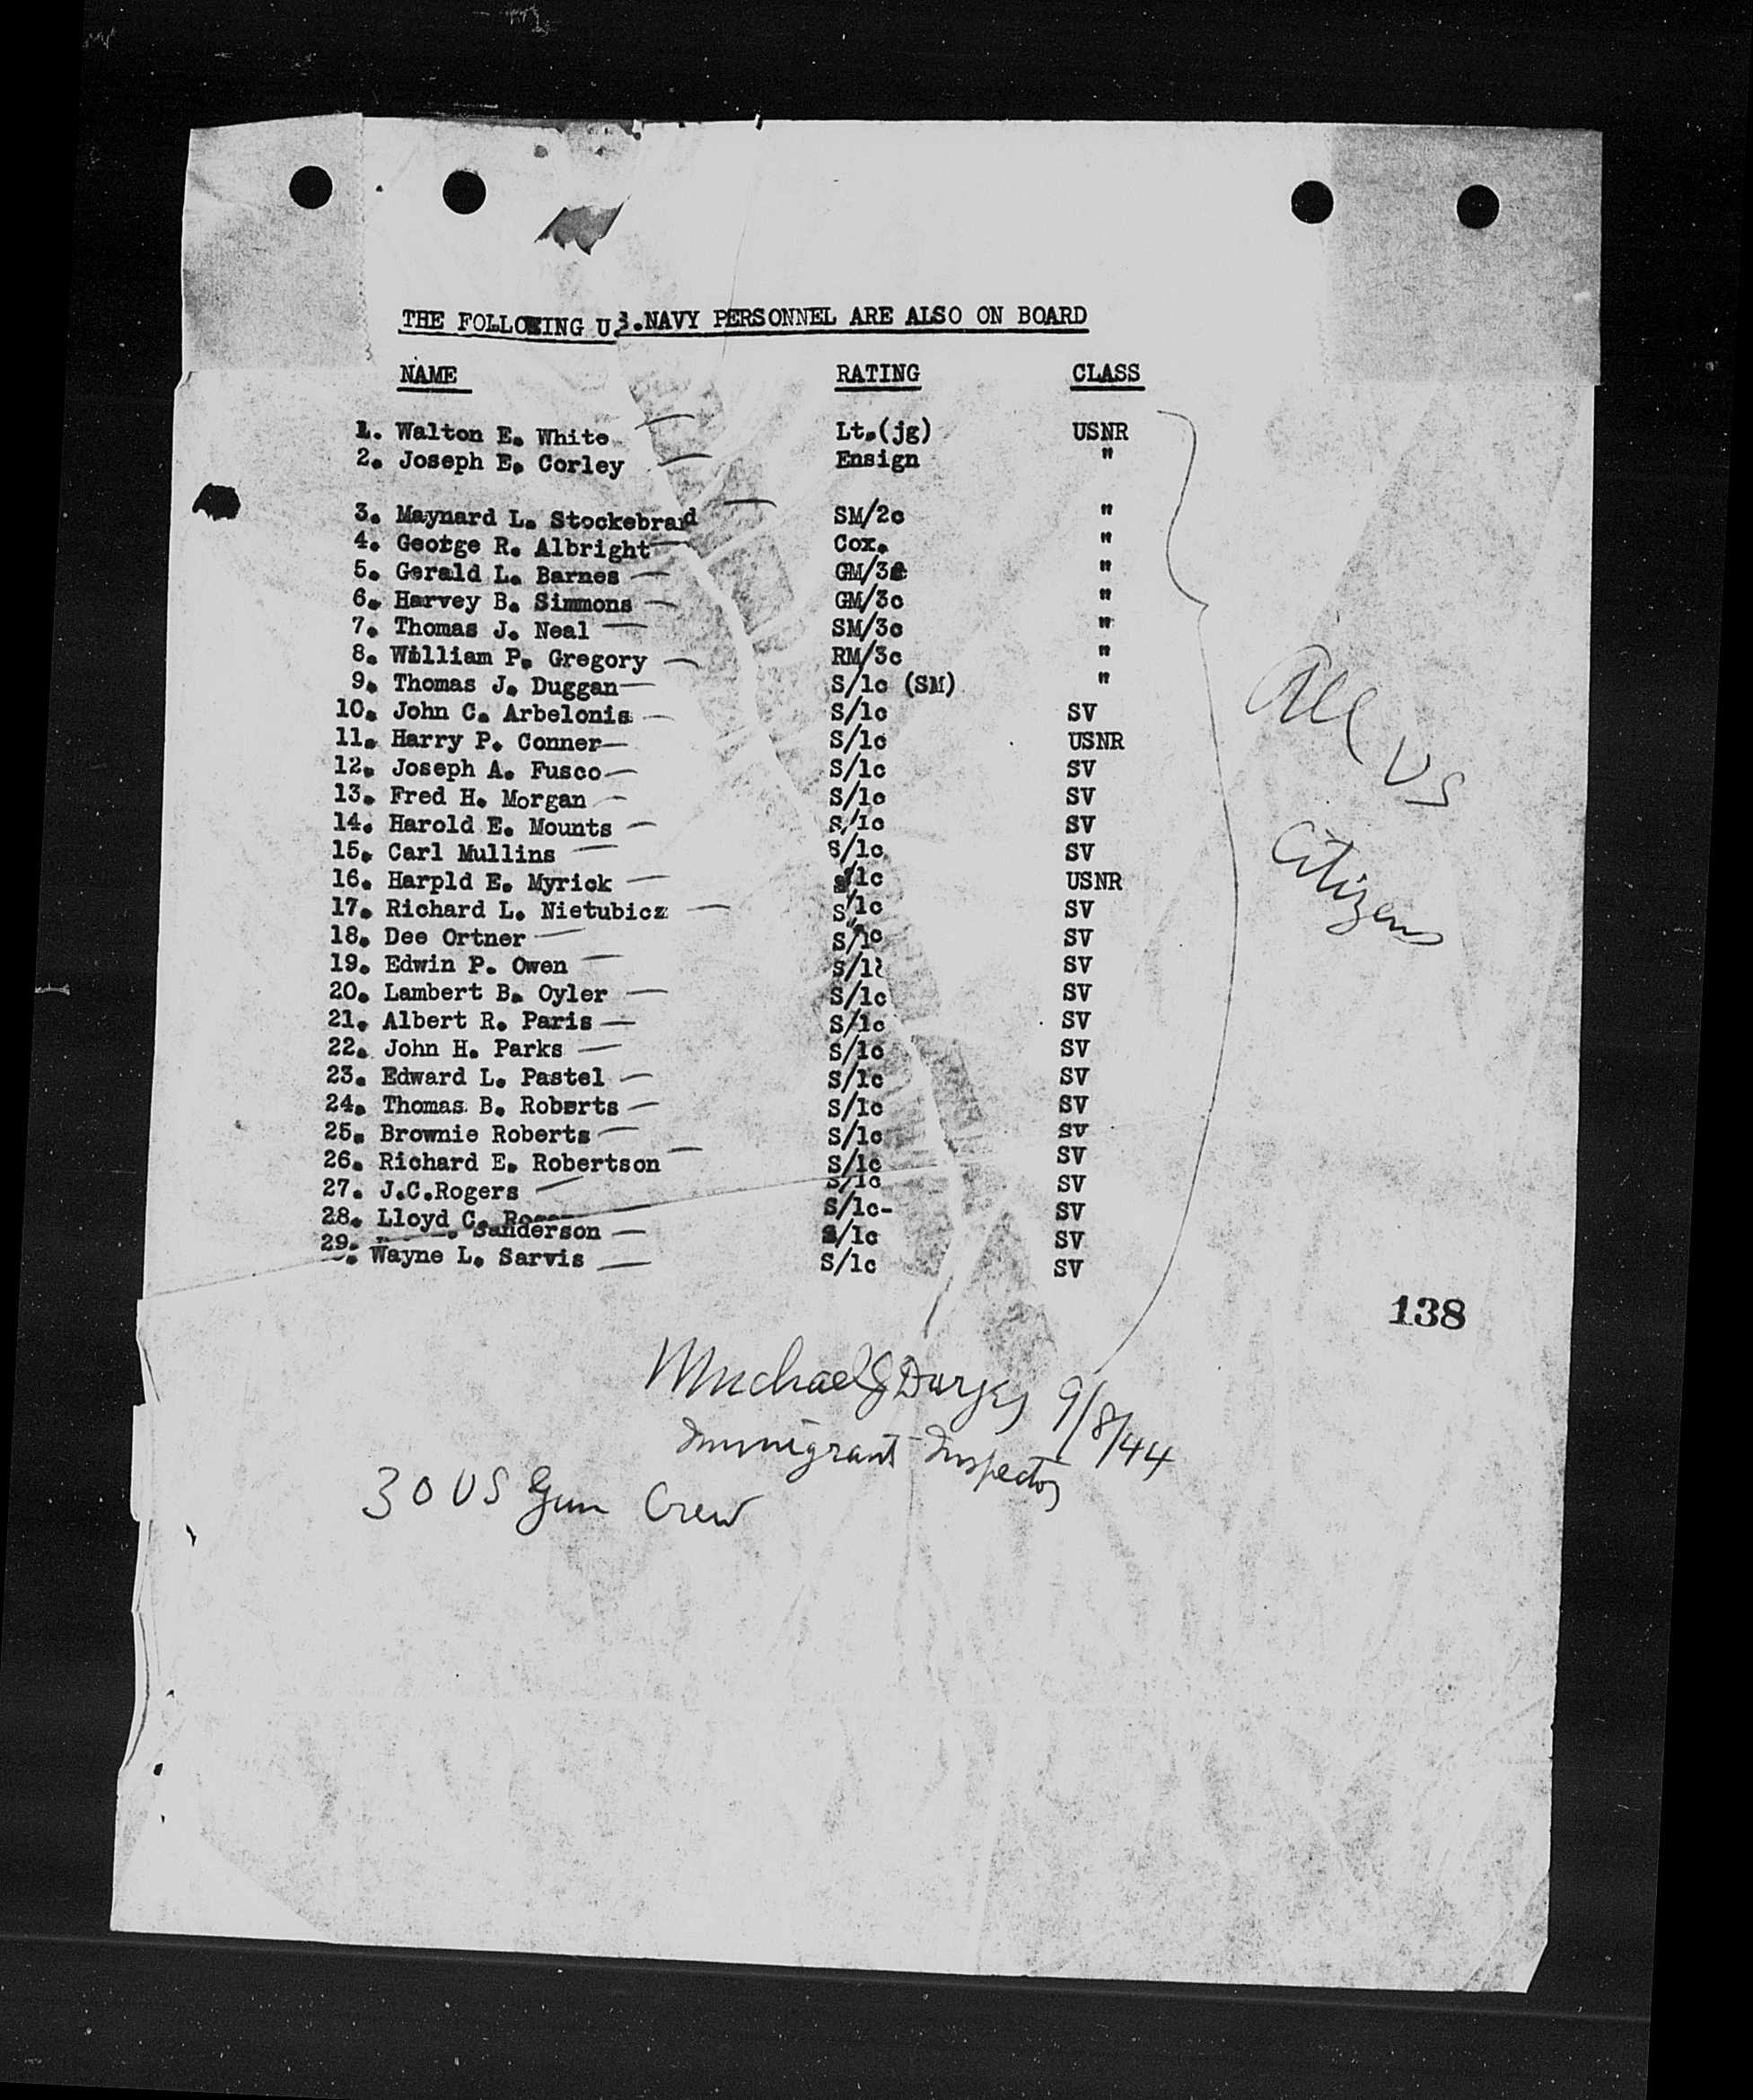 THE FOLLOWING U.S.NAVY PERSONNEL ARE ALSO ON BOARD
NAME RATING CLASS
1. Walton E. White Lt.(jg) USNR
2. Joseph E. Corley Ensign "
3. Maynard L. Stockebrand SM/2c "
4. George R. Albright Cox. "
5. Gerald L. Barnes GM/3c "
6. Harvey B. Simmons GM/3c "
7. Thomas J. Neal SM/3c "
8. William P. Gregory RM/3c "
9. Thomas J. Duggan S/1c (SM) "
10. John C. Arbelonis S/1c SV
11. Harry P. Conner S/1c USNR
12. Joseph A. Fusco S/1c SV
13. Fred H. Morgan S/1c SV
14. Harold E. Mounts S/1c SV
15. Carl Mullins S/1c SV
16. Harpld E. Myrick S/1c USNR
17. Richard L. Nietubicz S/1c SV
18. Dee Ortner S/1c SV
19. Edwin P. Owen S/1c SV
20. Lambert B. Oyler S/1c SV
21. Albert R. Paris S/1c SV
22. John H. Parks S/1c SV
23. Edward L. Pastel S/1c SV
24. Thomas B. Roberts S/1c SV
25. Brownie Roberts S/1c SV
26. Richard E. Robertson S/1c SV
27. J.C.Rogers S/1c SV
28. Lloyd C. S/1c- SV
29. Sanderson S/1c SV
Wayne L. Sarvis S/1c SV
All US
Citizens
138
Michael 9/8/44
Immigrant Inspector
30 US Gun Crew